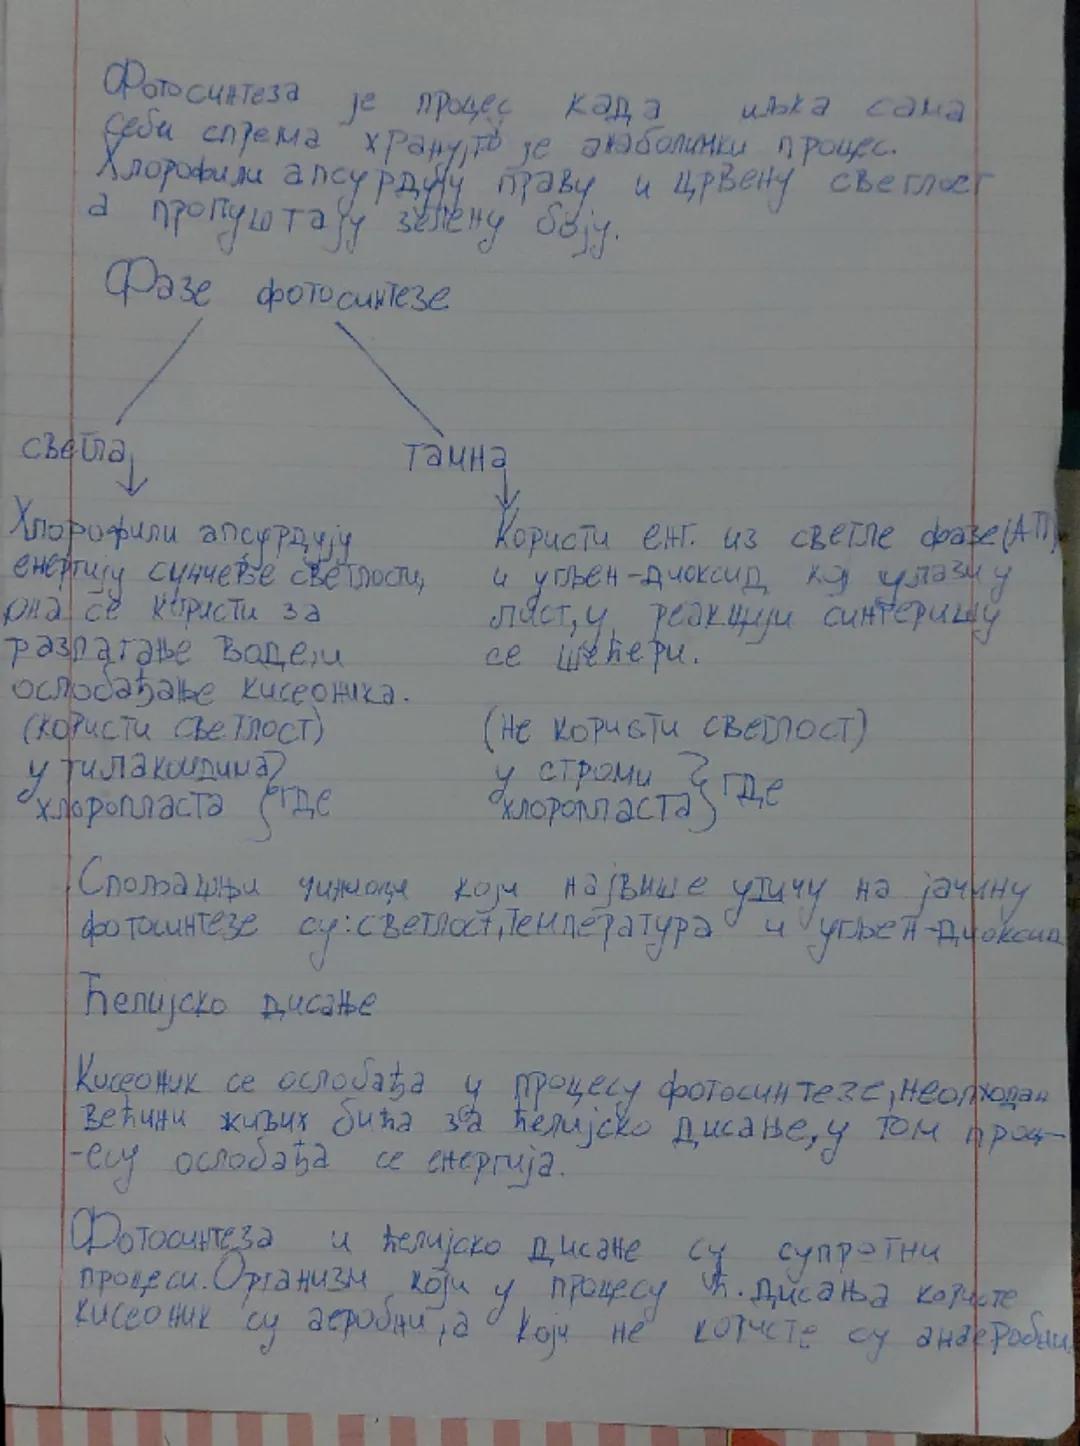 Фотосинтеза је процес када иљка сама
себи спрема храну, то је анаболички процес.
Хлорофили апсурдују праву и црвену светлост
а пропуштају зелену боју.
Фазе фотосинтезе
светла
тамна
Хлорофили апсурдују
енергију сунчевђе светлости,
она се користи за
разлагање воде и
ослобађање кисеоника.
(користи светлост)
у тилакоидима
хлоропласта
где
Користи енг. из светле фазе (АТП)
и угљен-диоксид кој улази у
лист, у реакцији синтеришу
се шећери.
(не користи светлост)
у строми
хлоропласта
где
Спољашњи чиниоци који највише утичу на јачину
фотосинтезе су: светлост, температура и угљен-диоксид
Ћелијско дисање
Кисеоник се ослобађа у процесу фотосинтезе, неопходан
већини живих бића за ћелијско дисање, у том проц-
-есу ослобађа се енергија.
Фотосинтеза и ћелијско дисане су супротни
процеси. Организми који у процесу ћ. дисања користе
кисеоник су аеробни, а који не користе су анаеробни.